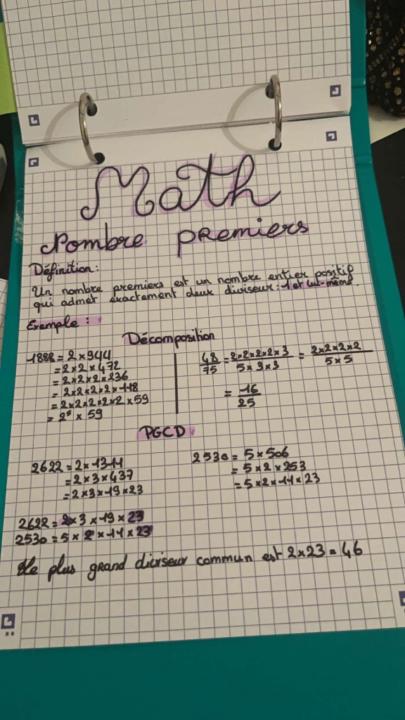 Math
Nombre premiers
Définition:
Un nombre premiers est un nombre entier positif
qui admet exactement deux diviseur: 1 et lui-même
Exemple :
Décomposition
1888 = 2 × 944
= 2×2 × 472
= 2×2×2 × 236
= 2×2×2×2 × 118
= 2×2×2×2×2 × 59
= 2⁵ × 59
48/75 = 2×2×2×2×3 / 5×3×5 = 2×2×2×2 / 5×5
= 16/25
PGCD
2622 = 2 × 1311
= 2×3 × 437
= 2×3×19×23
2530 = 5 × 506
= 5×2 × 253
= 5×2×11×23
2622 = 2×3×19×23
2530 = 5×2×11×23
Le plus grand diviseur commun est 2×23 = 46